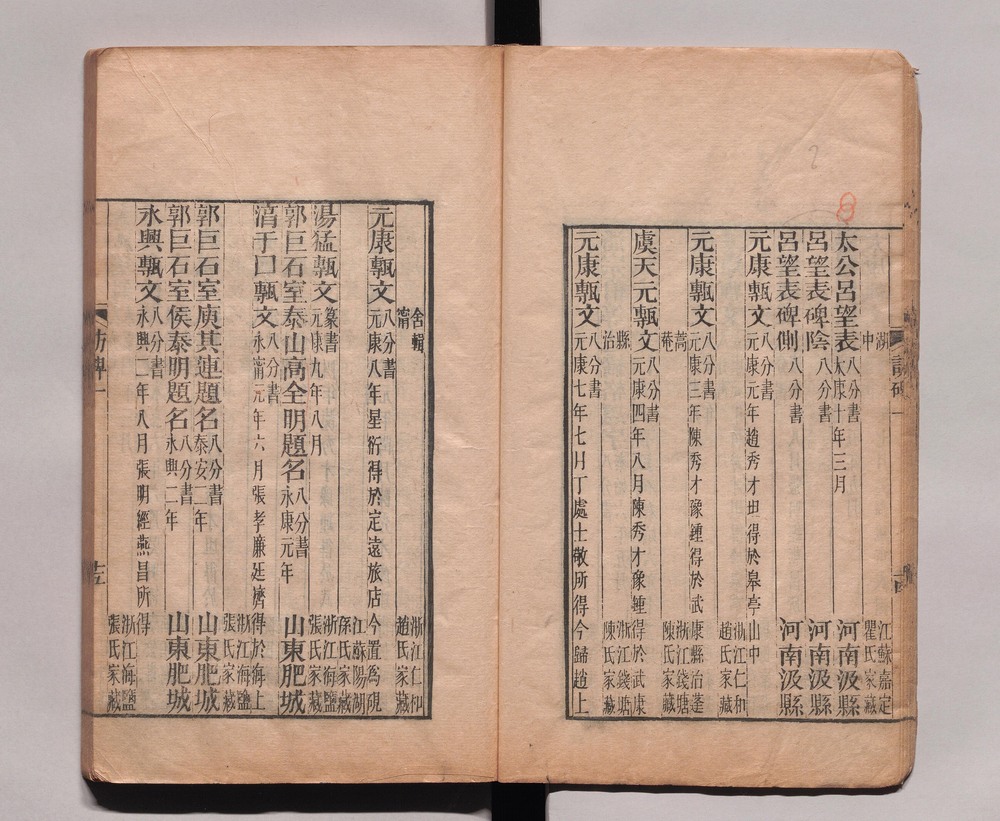 湖
中
江蘇嘉定
瞿氏家藏
太公呂望表
八分書
太康十年三月
河南汲縣
呂望表碑陰
八分書
河南汲縣
呂望表碑側
八分書
河南汲縣
元康甎文
八分書
元康元年趙秀才坦得於皋亭山中
浙江仁和
趙氏家藏
元康甎文
八分書
元康三年陳秀才豫鍾得於武康縣治蓬
蒿
菴
浙江錢塘
陳氏家藏
虞天元甎文
八分書
元康四年八月陳秀才豫鍾得於武康
縣
治
浙江錢塘
陳氏家藏
元康甎文
八分書
元康七年七月丁處士敬所得今歸趙上
舍輯
甯
浙江仁和
趙氏家藏
元康甎文
八分書
元康八年星衍得於定遠旅店今置為硯
江蘇陽湖
孫氏家藏
湯猛甎文
篆書
元康九年八月
浙江海鹽
張氏家藏
郭巨石室泰山高全明題名
八分書
永康元年
山東肥城
淯于口甎文
八分書
永甯元年六月張孝廉廷濟得於海上
浙江海鹽
張氏家藏
郭巨石室庾其連題名
八分書
泰安二年
山東肥城
郭巨石室侯泰明題名
八分書
永興二年
山東肥城
永興甎文
八分書
永興二年八月張明經燕昌所得
浙江海鹽
張氏家藏
訪碑一